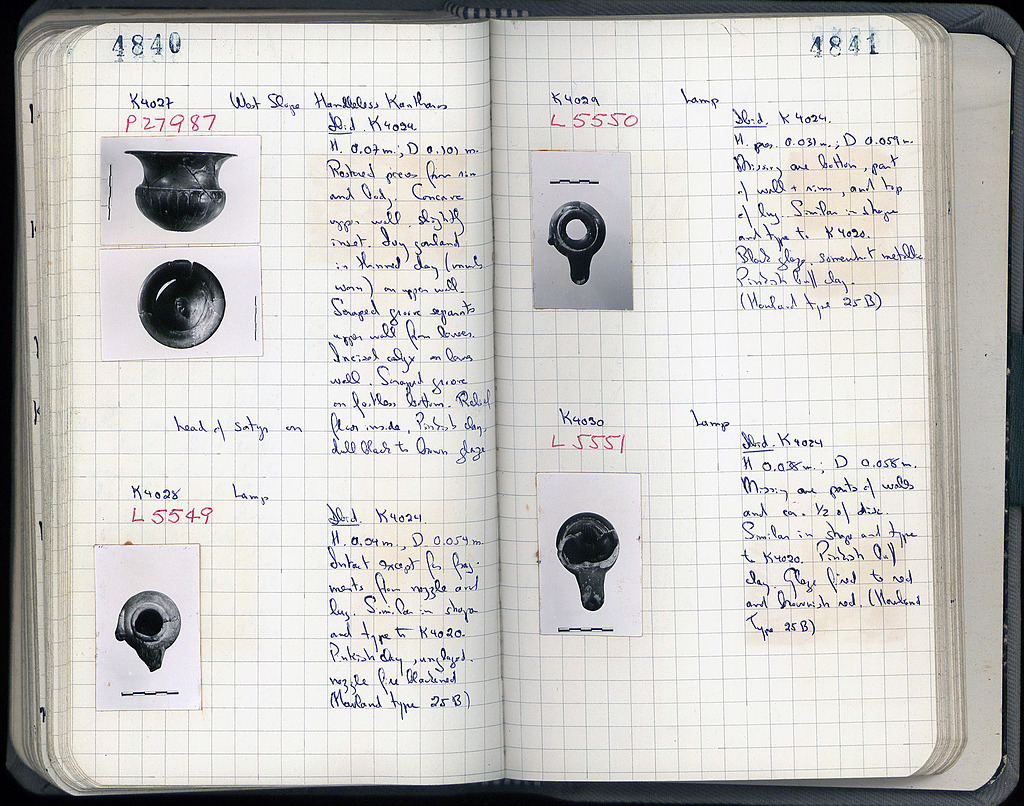 4840
K4027 West Slope Handleless Kantharos
P27987
Ibid. K4024
H. 0.07m.; D 0.101 m.
Restored pieces from rim
and body. Concave
upper wall slightly
inset. Ivy garland
in thinned clay (much
worn) on upper wall.
Scraped groove separates
upper wall from lower.
Incised calyx on lower
wall. Scraped groove
on footless bottom. Relief
head of satyr on floor inside. Pinkish clay,
dull black to brown glaze
K4028 Lamp
L 5549
Ibid. K4024.
H. 0.04m., D 0.054m
Intact except for frag-
ments from nozzle and
lug. Similar in shape
and type to K4020.
Pinkish clay, unglazed.
nozzle fire blackened
(Howland type 25B)
4841
K4029 Lamp
L 5550
Ibid. K4024.
H. pres. 0.031m.; D 0.059m.
Missing are bottom, part
of wall + rim, and top
of lug. Similar in shape
and type to K4020.
Black glaze, somewhat metallic
Pinkish buff clay.
(Howland type 25B)
K4030 Lamp
L 5551
Ibid. K4024
H 0.038m.; D 0.058m.
Missing are parts of walls
and ca. 1/2 of disc.
Similar in shape and type
to K4020. Pinkish buff
clay. Glaze fired to red
and brownish red. (Howland
Type 25B)